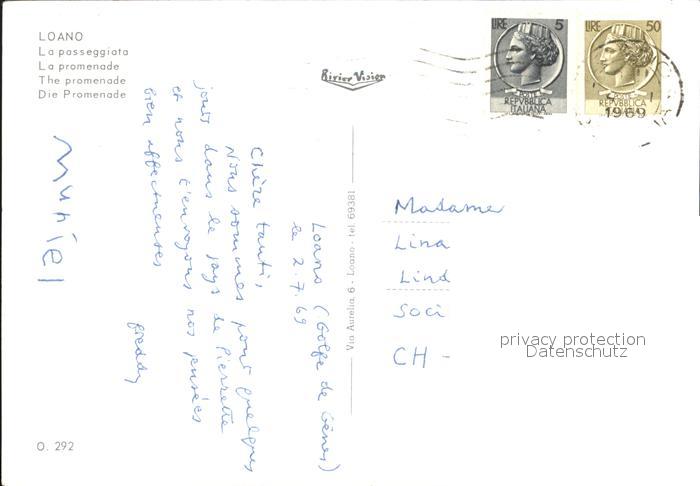 LOANO
La passeggiata
La promenade
The promenade
Die Promenade
Rivier Vision
LIRE 5
POSTE
REPVBBLICA
ITALIANA
LIRE 50
POSTE
REPVBBLICA
1969
Loano (Golfe de Gênes)
le 2.7.69
Chère tanti,
Nous sommes pour quelques
jours dans le pays de Pierrette
et nous t'envoyons nos pensées
bien affectueuses
freddy
Muriel
Via Aurelia, 6 - Loano - tel. 69381
Madame
Lina
Lind
Soci
CH -
privacy protection
Datenschutz
O. 292